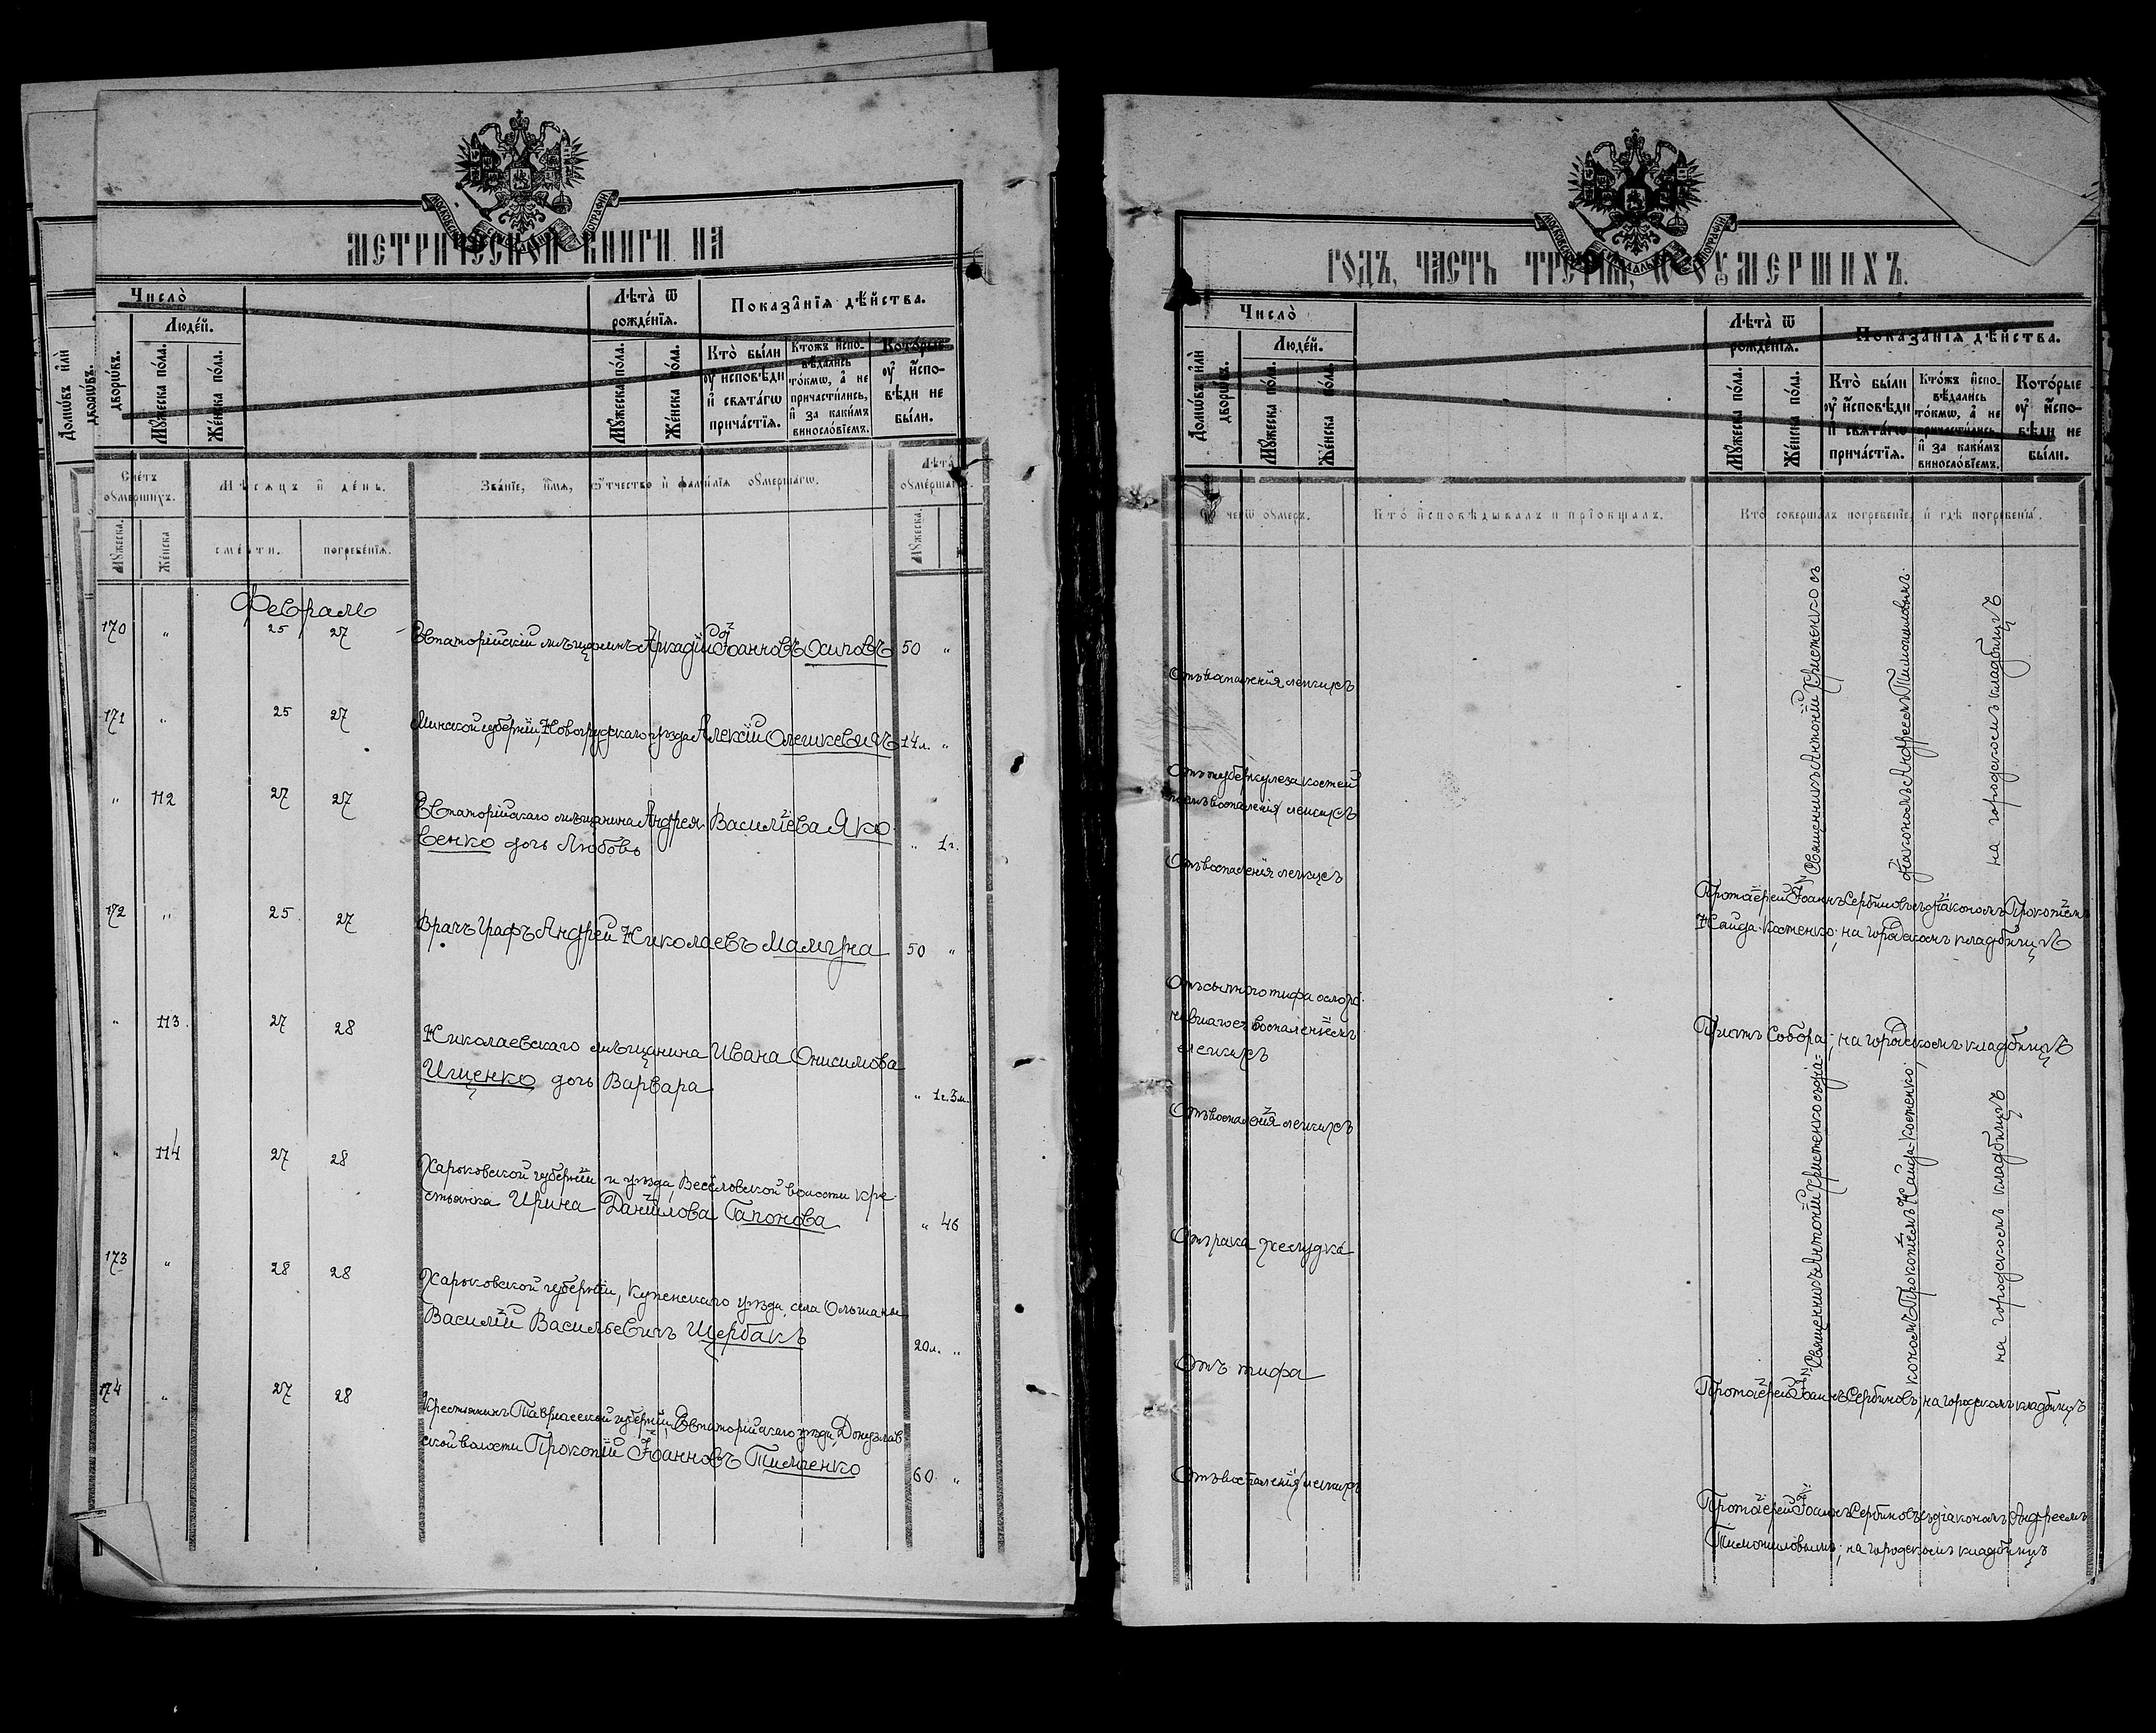 МЕТРИЧЕСКОЙ КНИГИ НА
Число̀
Людéй.
Мꙋжеска пóла.
Жéнска пóла.
Лѣта̀ ѿ рождéнїѧ.
Мꙋжеска пóла.
Жéнска пóла.
Показа̑нїѧ дѣ́йства.
Кто̀ бы́ли
оу҆ и҆сповѣди
и҆ свѧта́гѡ
прича́стїѧ.
Ктожъ и҆спо-
вѣдались
то́кмѡ, а҆ не
причасти́лись,
и҆ за каки́мъ
винослóвїемъ.
Кото́рые
оу҆ и҆спо-
вѣди не
бы́ли.
Счетъ оумершихъ.
Мꙋжеска.
Же́нска
Мѣсяцъ и день.
смерти.
погребенїѧ.
Званїе, имѧ, ѻтчество и фамилїѧ оумершагѡ.
Лѣта оумершагѡ.
Мꙋжеска.
Февраль
170 " 25 27 Евпаторійскій мѣщанинъ Аркадій Іоанновъ Осиповъ 50 "
171 " 25 27 Минской губерніи, Новогрудскаго уѣзда Алексій Олешкевичъ 14 л. "
" 112 27 27 Евпаторійскаго мѣщанина Андрея Васильева Яко-
венко дочь Любовь " 1 г.
172 " 25 27 Врачъ Графъ Андрей Николаевъ Мамуна 50 "
" 113 27 28 Николаевскаго мѣщанина Ивана Онисимова
Ищенко дочь Варвара " 1 г. 3 м.
" 114 27 28 Харьковской губерніи и уѣзда, Веселовской волости кре-
стьянка Ирина Данилова Гапонова " 46
173 " 28 28 Харьковской губерніи, Купенскаго уѣзда, села Ольшаны
Василій Васильевичъ Щербакъ 20 л. "
174 " 27 28 Крестьянинъ Таврической губерніи, Евпаторійскаго уѣзда, Донузлав
ской волости Прокопій Іоанновъ Тимченко 60 "
ГОДЪ, ЧАСТЬ ТРЕТІѦ, Ѡ ОУМЕРШИХЪ.
Число̀
Домѡ́въ и҆лѝ дворѡ́въ.
Людéй.
Мꙋжеска пóла.
Жéнска пóла.
Лѣта̀ ѿ рождéнїѧ.
Мꙋжеска пóла.
Жéнска пóла.
Показа̑нїѧ дѣ́йства.
Кто̀ бы́ли
оу҆ и҆сповѣди
и҆ свѧта́гѡ
прича́стїѧ.
Ктожъ и҆спо-
вѣдались
то́кмѡ, а҆ не
причасти́лись,
и҆ за каки́мъ
винослóвїемъ.
Кото́рые
оу҆ и҆спо-
вѣди не
бы́ли.
чегѡ оумеръ.
Кто исповѣдывалъ и прїобщалъ.
Кто совершалъ погребенїе, и гдѣ погребены.
Отъ воспаленія легкихъ
Отъ туберкулеза костей
воспаленія легкихъ
Отъ воспаленія легкихъ
Отъ сыпного тифа ослож-
нившагося воспаленіемъ
легкихъ
Отъ воспаленія легкихъ
Отъ рака желудка
Отъ тифа
Отъ воспаленія легкихъ
Священникъ Антоній Христенко съ
діакономъ Андреемъ Тимошиловымъ
на городскомъ кладбищѣ
Протоіерей Іоаннъ Сербиновъ съ діакономъ Прокопіемъ
Кайда-Костенко; на городскомъ кладбищѣ
Причтъ Собора; на городскомъ кладбищѣ
Священникъ Антоній Христенко съ діа-
кономъ Прокопіемъ Кайда-Костенко,
на городскомъ кладбищѣ
Протоіерей Іоаннъ Сербиновъ; на городскомъ кладбищѣ
Протоіерей Іоаннъ Сербиновъ съ діакономъ Андреемъ
Тимошиловымъ; на городскомъ кладбищѣ